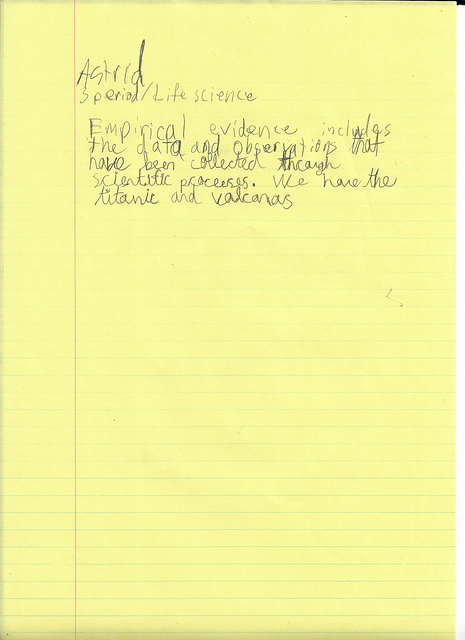 Astrid
3 period/Life science
Empirical evidence includes
the data and observations that
have been collected through
scientific processes. We have the
titanic and valcanas